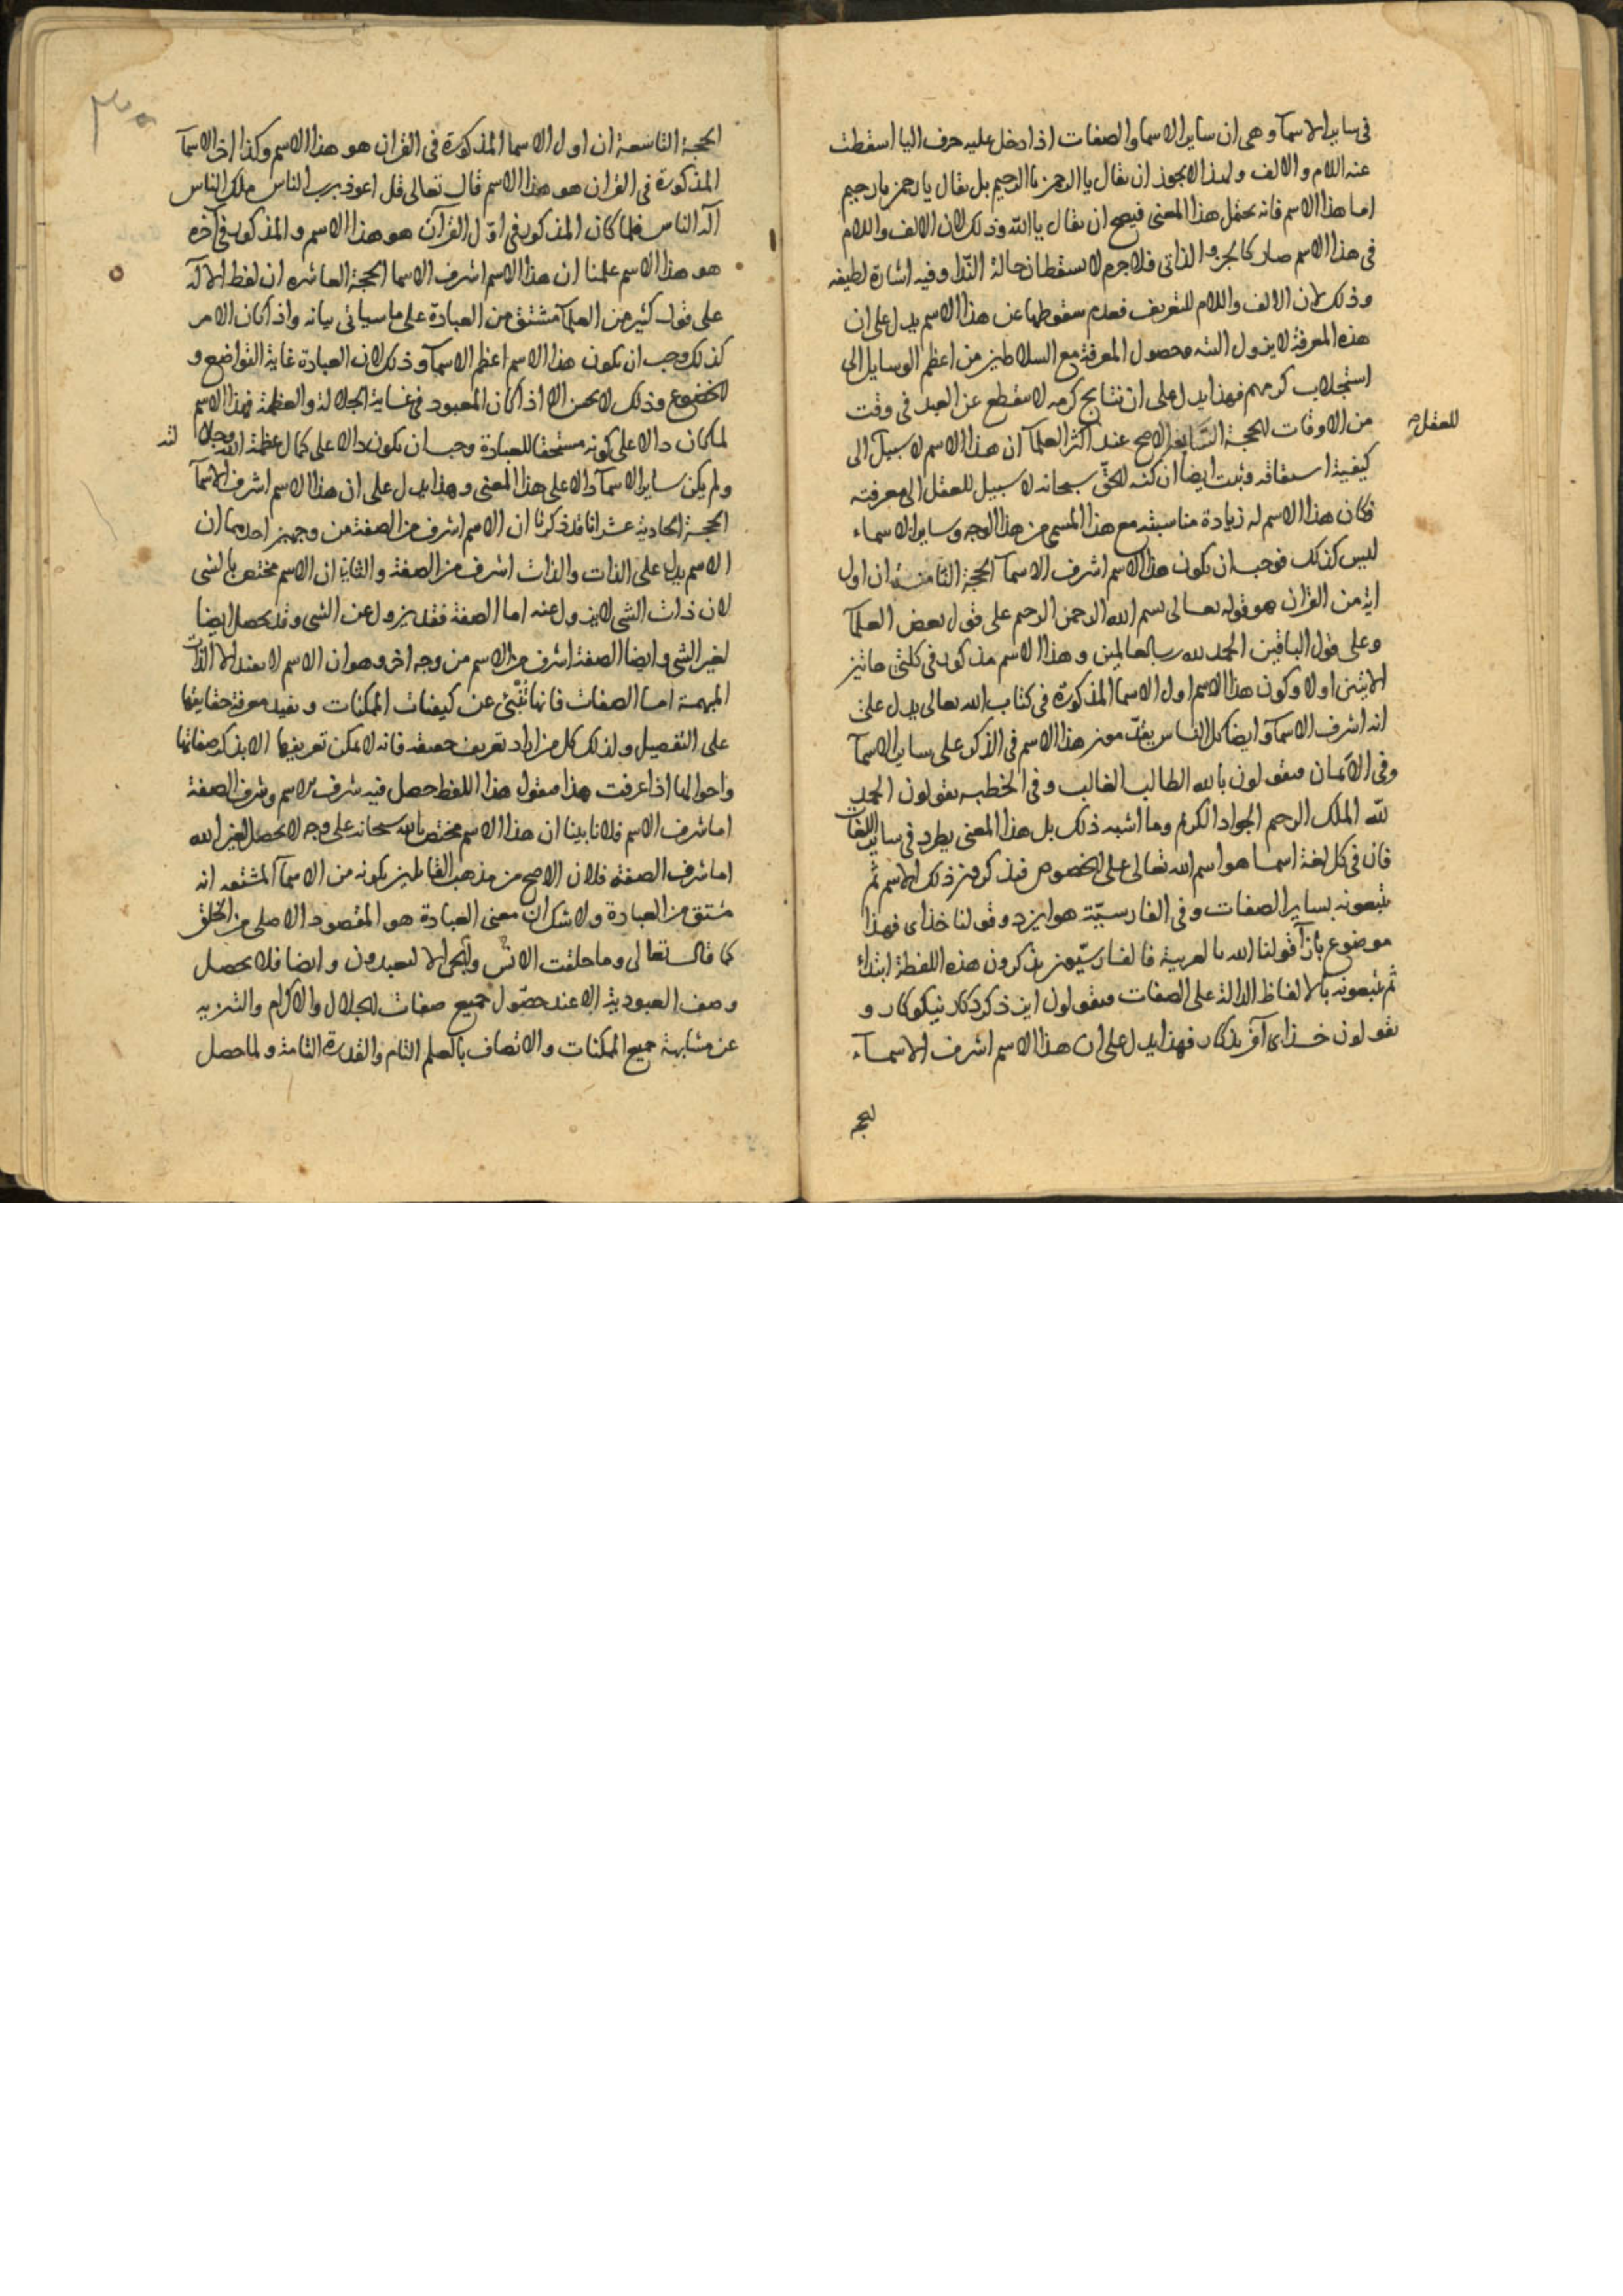 فى ساير الاسمآ وهى ان ساير الاسما والصفات اذا دخل عليه حرف اليا اسقطت
عنه اللام والالف ولهذا لا يجوز ان يقال يا الرحمن يا الرحيم بل يقال يا رحمن يا رحيم
اما هذا الاسم فانه يحتمل هذا المعنى فيصح ان يقال يا الله وذلك لان الالف واللام
فى هذا الاسم صار كالجزء الذاتى فلا جرم لا يسقطان حالة الندا وفيه اشارة لطيفه
وذلك لان الالف واللام للتعريف فعدم سقوطهما عن هذا الاسم يدل على ان
هذه المعرفة لا يزول البته وحصول المعرفة مع السلاطين من اعظم الوسايل الى
استجلاب كرمهم فهذا يدل على ان نتايج كرمه لا ينقطع عن العبد فى وقت
من الاوقات الحجة السابعة الاصح عند اكثر العلمآ ان هذا الاسم لا سبيل الى
للعقل
كيفية اشتقاقه وثبت ايضا ان كنه الحق سبحانه لا سبيل للعقل الى معرفته
فكان هذا الاسم له زيادة مناسبة مع هذا المسمى من هذا الوجه وساير الاسماء
ليس كذلك فوجب ان يكون هذا الاسم اشرف الاسمآ الحجة الثامنة ان اول
اية من القران هو قوله تعالى بسم الله الرحمن الرحيم على قول بعض العلمآ
وعلى قول الباقين الحمد لله رب العالمين وهذا الاسم مذكور فى كلتى هاتين
الايتين اولا وكون هذا الاسم اول الاسما المذكورة فى كتاب الله تعالى يدل على
انه اشرف الاسمآ وايضا كل الناس يقدمون هذا الاسم فى الذكر على ساير الاسمآ
وفى الايمان فيقولون بالله الطالب الغالب وفى الخطبه يقولون الحمد
لله الملك الرحيم الجواد الكريم وما اشبه ذلك بل هذا المعنى يطرد فى ساير اللغات
فان فى كل لغة اسما هو اسم الله تعالى على الخصوص فيذكرون ذلك الاسم ثم
يتبعونه بساير الصفات وفى الفارسية هو ايزد وقولنا خذاى فهذا
موضوع بازآ قولنا الله بالعربية فالفارسيون يذكرون هذه اللفظة ابتداء
ثم يتبعونه بالالفاظ الدالة على الصفات فيقولون ايزد كردكار نيكوكار و
يقولون خذاى آفريذكار فهذا يدل على ان هذا الاسم اشرف الاسمآء
الحجة التاسعة ان اول الاسما المذكورة فى القران هو هذا الاسم وكذا اخر الاسمآ
المذكورة فى القران هو هذا الاسم قال تعالى قل اعوذ برب الناس ملك الناس
اله الناس فلما كان المذكور فى اول القرآن هو هذا الاسم والمذكور فى آخره
هو هذا الاسم علمنا ان هذا الاسم اشرف الاسما الحجة العاشره ان لفظ الاله
على قول كثير من العلمآ مشتق من العبادة على ما سياتى بيانه واذا كان الامر
كذلك وجب ان يكون هذا الاسم اعظم الاسمآ وذلك لان العبادة غاية التواضع و
الخضوع وذلك لا يحسن الا اذا كان المعبود فى غاية الجلالة والعظمة فهذا الاسم
لما كان دالا على كونه مستحقا للعبادة وجب ان يكون دالا على كمال عظمة الله وجلا لته
ولم يكن ساير الاسمآ دالا على هذا المعنى وهذا يدل على ان هذا الاسم اشرف الاسمآ
الحجة الحادية عشر انا قد ذكرنا ان الاسم اشرف من الصفة من وجهين احدهما ان
الاسم يدل على الذات والذات اشرف من الصفة والثانى ان الاسم مختص بالشى
لان ذات الشى لا يزول عنه اما الصفة فقد يزول عن الشى وقد يحصل ايضا
لغير الشى وايضا الصفة اشرف من الاسم من وجه اخر وهو ان الاسم لا يفيد الا الذات
المبهمة اما الصفات فانها تنبئ عن كيفيات الممكنات ويفيد معرفة حقايقها
على التفصيل ولذلك كل من اراد تعريف حقيقه فانه لا يمكن تعريفها الا بذكر صفاتها
واحوالها اذا عرفت هذا فيقول هذا اللفظ حصل فيه شرف الاسم وشرف الصفة
اما شرف الاسم فلانا بينا ان هذا الاسم مختص بالله سبحانه على وجه لا يحصل لغير الله
اما شرف الصفة فلان الاصح من مذهب القايلين بكونه من الاسمآ المشتقه انه
مشتق من العبادة ولا شك ان معنى العبادة هو المقصود الاصلى من الخلق
كما قال تعالى وما خلقت الانس والجن الا ليعبدون وايضا فلا يحصل
وصف العبودية الا عند حصول جميع صفات الجلال والاكرام والتنزيه
عن مشابهة جميع الممكنات والاتصاف بالعلم التام والقدرة التامة ولما حصل